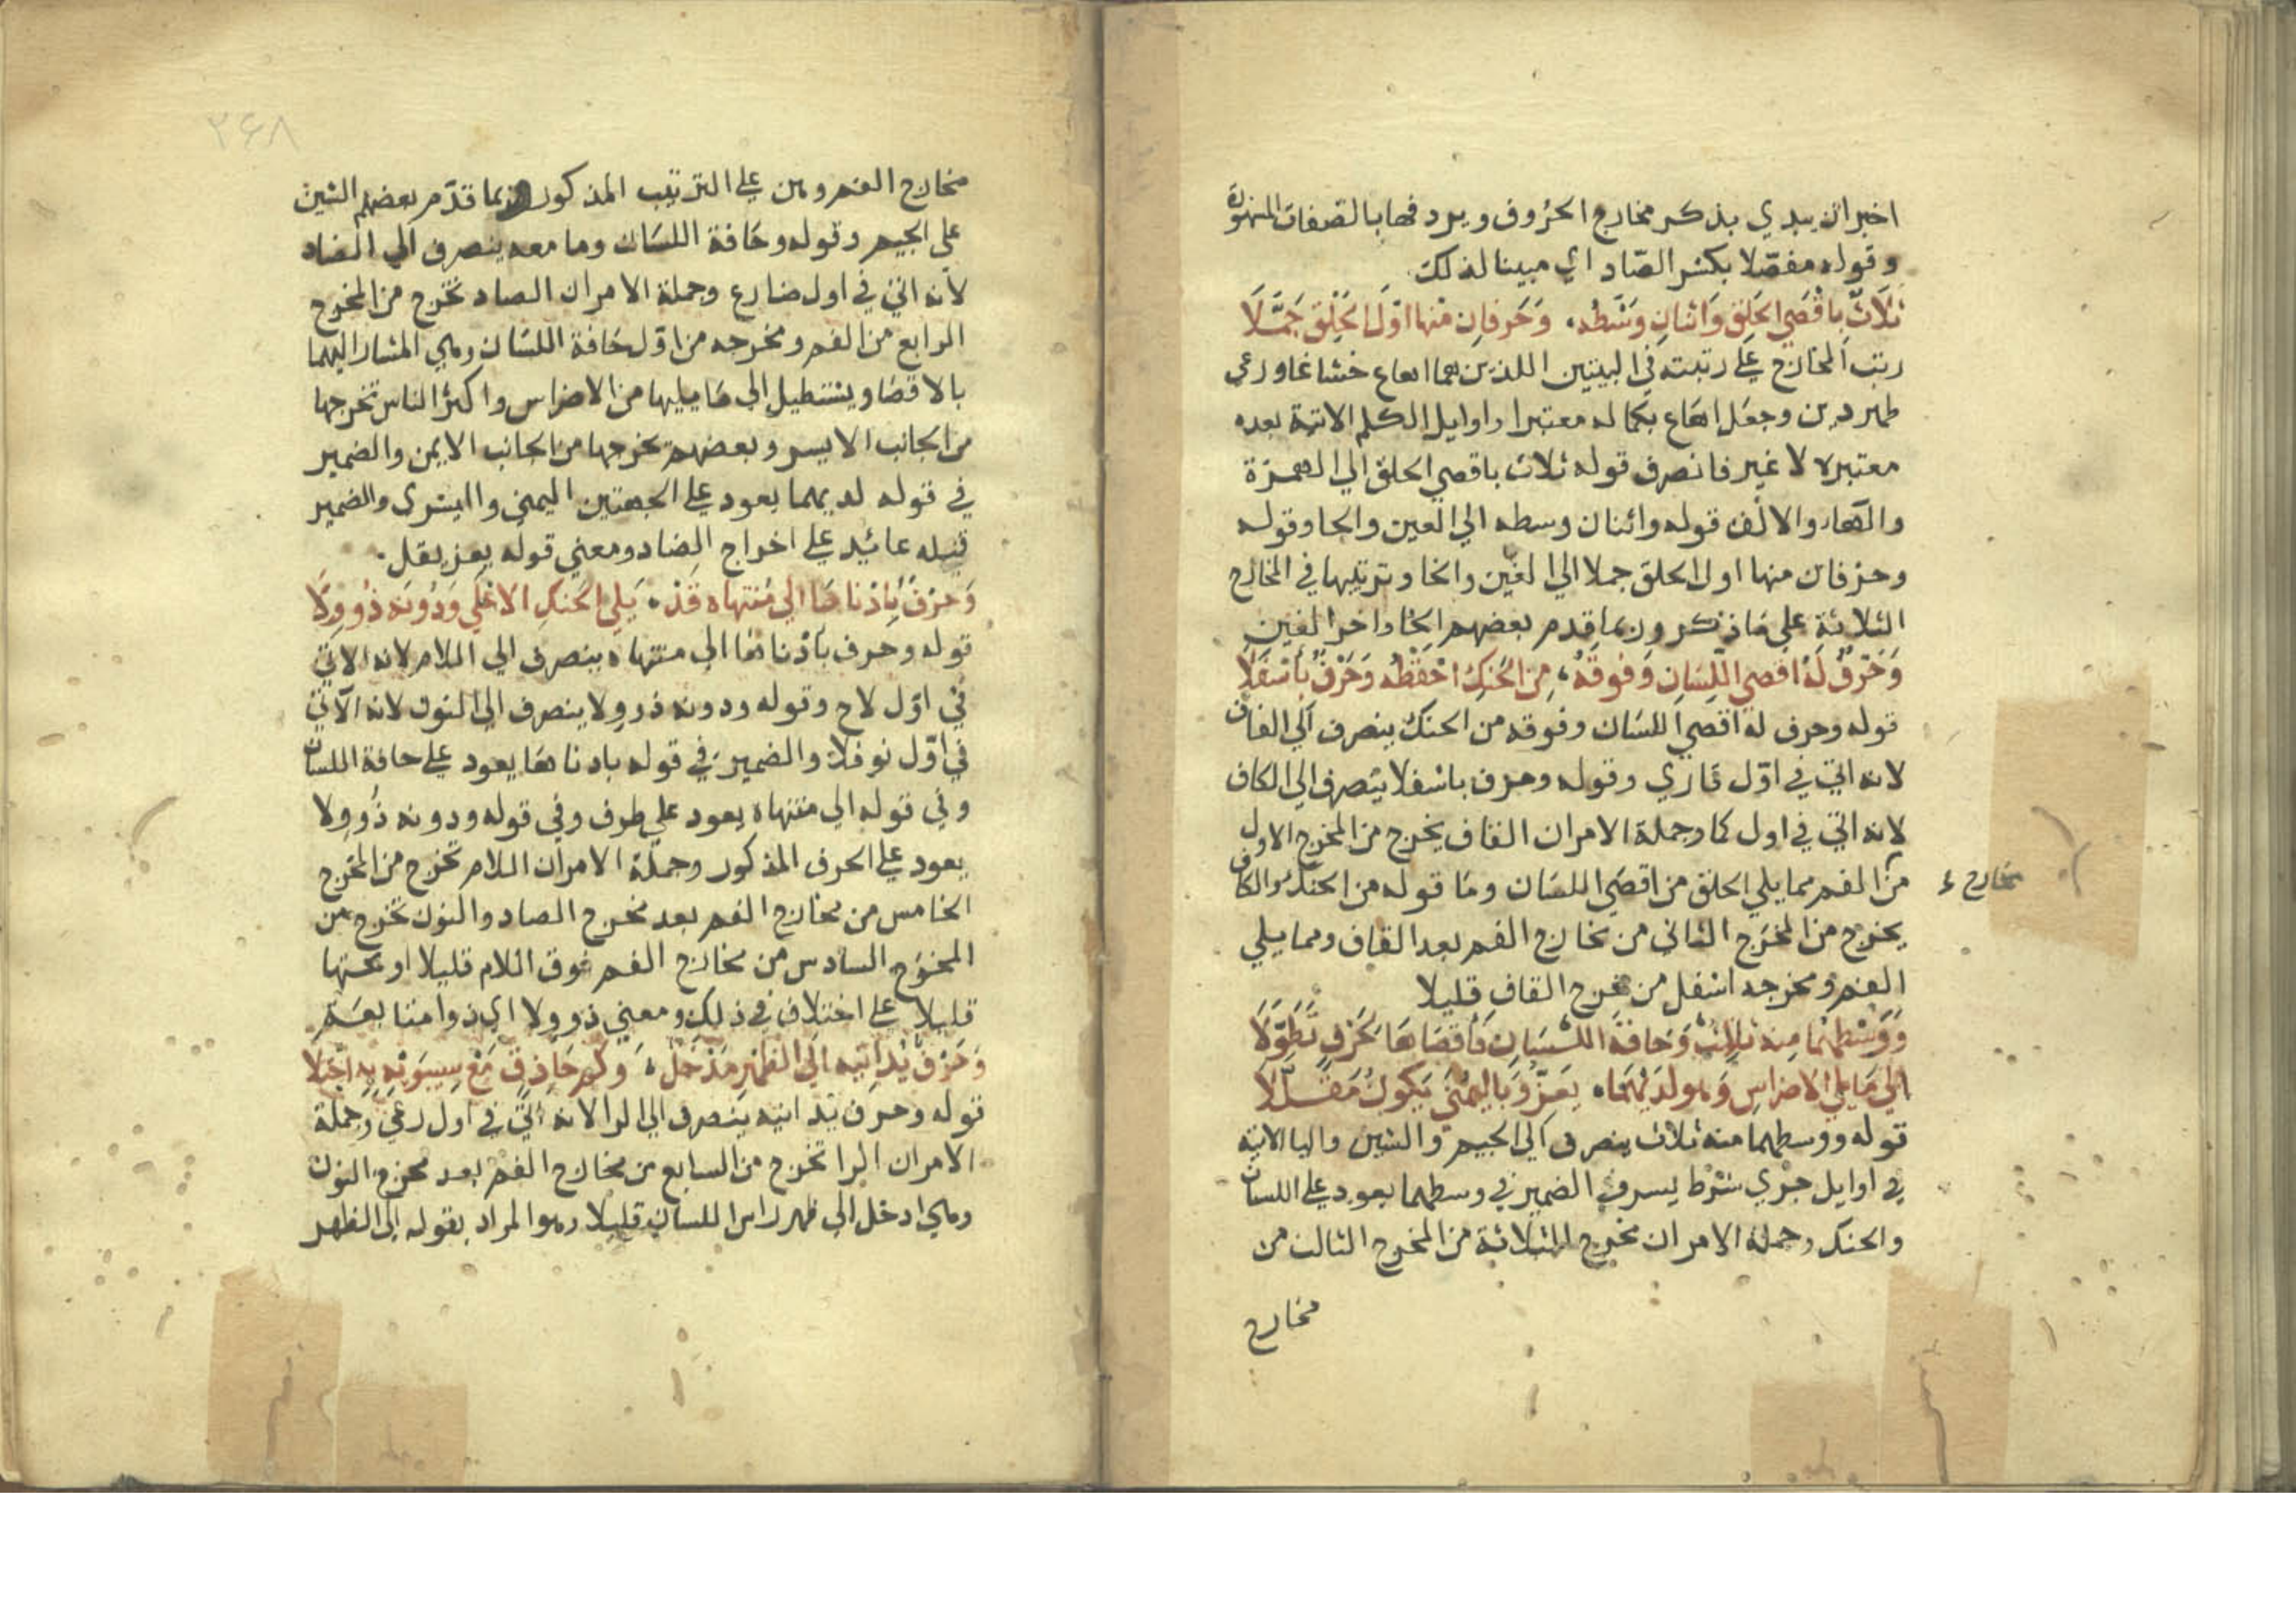 اخبر ان يبدي بذكر مخارج الحروف ويردفها بالصفات المشهورة
وقوله مفصلا بكسر الصاد اي مبينا لذلك
ثَلَاثٌ بِاَقْصَي الحَلقِ وَاثنانِ وَسْطُه، وَحَرفانِ منها اوّلَ الحَلقِ جَمَّلَا
رتب المخارج علي رتبته في البيتين اللذين هما اهاع حشا غاو وعي
طهر دين وجعل اهاع بكماله معتبرا واوايل الكلم الاتية بعده
معتبره لا غير فانصرف قوله ثلاث باقصي الحلق الي الهمزة
والهاء والالف قوله واثنان وسطه الي العين والحا وقوله
وحرفان منها اول الحلق جملا الي الغين والخا وترتيبها في المخارج
الثلاثة علي ما ذكر وربما قدم بعضهم الخا واخر الغين
وَحَرْفٌ لَهُ اقصي اللِسَانِ وَفَوقَهُ، مِنَ الحَنكِ احْفَظْه وَحَرْفٌ بِأسْفَلَا
قوله وحرف له اقصي اللسان وفوقه من الحنك ينصرف الي القاف
لانه اتي في اوّل قاري وقوله وحرف باسفلا ينصرف الي الكاف
لانه اتي في اول كما وجملة الامر ان القاف يخرج من المخرج الاول
من الفم مما يلي الحلق من اقصي اللسان وما قوله من الحنك والكاف
مخارج ء
يخرج من المخرج الثاني من مخارج الفم بعد القاف ومما يلي
الفم ومخرجه اسفل من مخرج القاف قليلا
وَوَسْطهُمَا مِنه ثلاثٌ وَحَافَةُ اللِّسَانِ فَأقصَاهَا لحَرْفٍ تَطَوَّلَا
الي مَا يلي الاضراسِ وَهو لدَيْهِمَا، يَعِزُّ وَبِاليُمْني يَكونُ مُقَلَّلَا
قوله ووسطهما منه ثلاث ينصرف الي الجيم والشين واليا الاتية
في اوايل جري شرط يسر في الضمير في وسطهما يعود علي اللسان
والحنك وجملة الامر ان مخرج الثلاثة من المخرج الثالث من
مخارج
٢٤٨
مخارج الفم وهن علي الترتيب المذكور وربما قدّم بعضهم الشين
علي الجيم وقوله وحافة اللسان وما معه ينصرف الي الضاد
لأنه اتي في اول ضارع وجملة الامر ان الضاد تخرج من المخرج
الرابع من الفم ومخرجه من اوّل حافة اللسان وهي المشار اليهما
بالاقصا ويستطيل الي ما يليها من الاضراس واكثر الناس تخرجها
من الجانب الايسر وبعضهم يخرجها من الجانب الايمن والضمير
في قوله لديهما يعود علي الجهتين اليمني واليسري والضمير
قبله عائيد علي اخراج الضاد ومعني قوله يعز يقل.
وَحَرْفٌ بِأدْنَاهَا الي مُنتهاه قَدْ، يَلي الحَنكِ الاعْلَي وَدُونَه ذُو وِلَا
قوله وحرف بأدناها الي منتهاه ينصرف الي اللام لانه الاتي
في اوّل لاح وقوله ودونه ذو ولا ينصرف الي النون لانه الآتي
في اوّل نوفلا والضمير في قوله بادناها يعود علي حافة اللسان
وفي قوله الي منتهاه يعود علي طرف وفي قوله ودونه ذُو وِلا
يعود علي الحرف المذكور وجملة الامر ان اللام تخرج من المخرج
الخامس من مخارج الفم بعد مخرج الضاد والنون تخرج من
المخرج السادس من مخارج الفم فوق اللام قليلا او تحتها
قليلا علي اختلاف في ذلك ومعني ذو ولا اي ذو امتابعة
وَحَرْفٌ يُدَانِيه الَي الظهْرِ مَدْخَلٌ، وَكَم حَاذِقٍ مَعْ سِيبَوَيْهِ بِه اجْتَلَا
قوله وحرف يدانيه ينصرف الي الرا لانه اتي في اول رعي وجملة
الامر ان الرا تخرج من السابع من مخارج الفم بعد مخرج النون
وهي ادخل الي ظهر راس اللسان قليلا وهو المراد بقوله الي الظهر